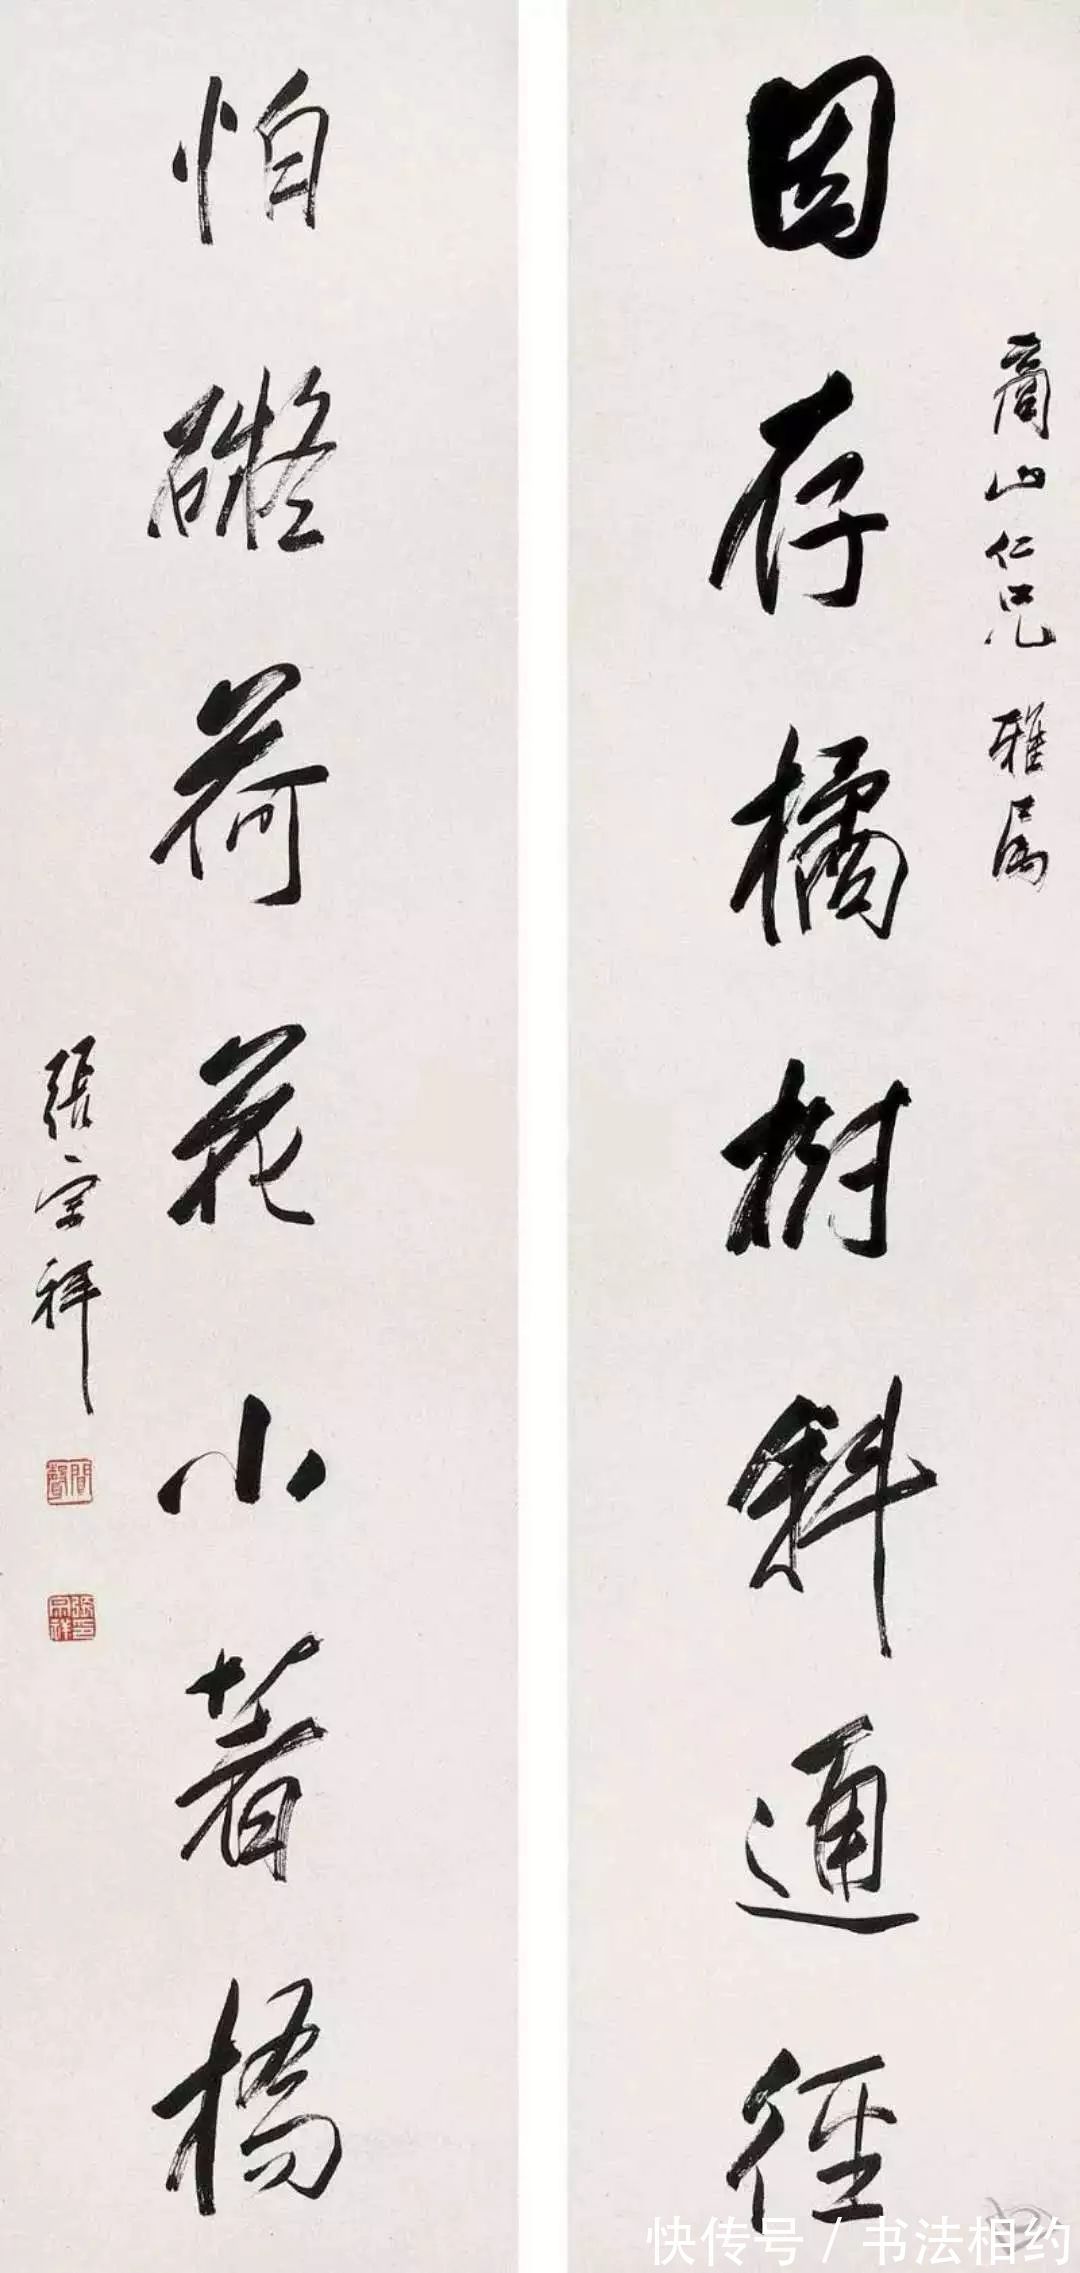 商山仁兄雅属
因存橘树斜通径
怕礙荷花小著橋
張宗祥
快传号 / 书法相约